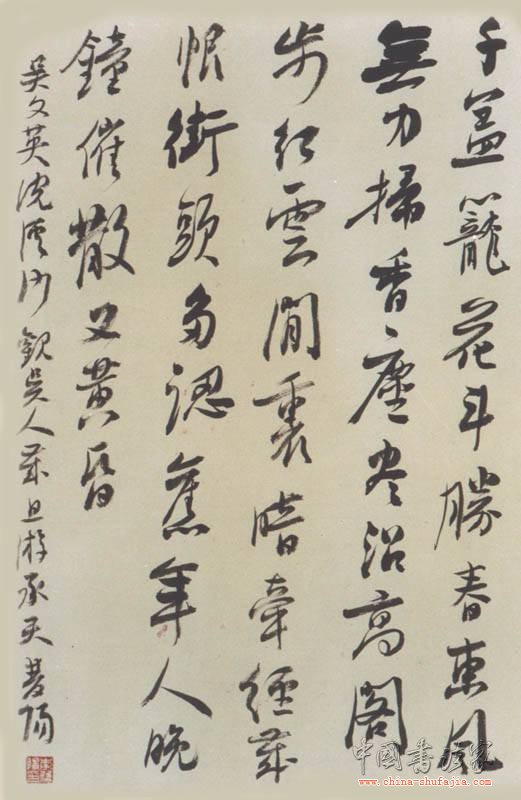 千蓋籠花斗勝春東風
無力掃香塵尽沿高閣
步紅雲閒裏暗牽經歲
恨街頭多認舊年人晚
鐘催散又黄昏
吴文英浣溪沙觀吴人歲旦游承天
中國書法家
www.china-shufajia.com